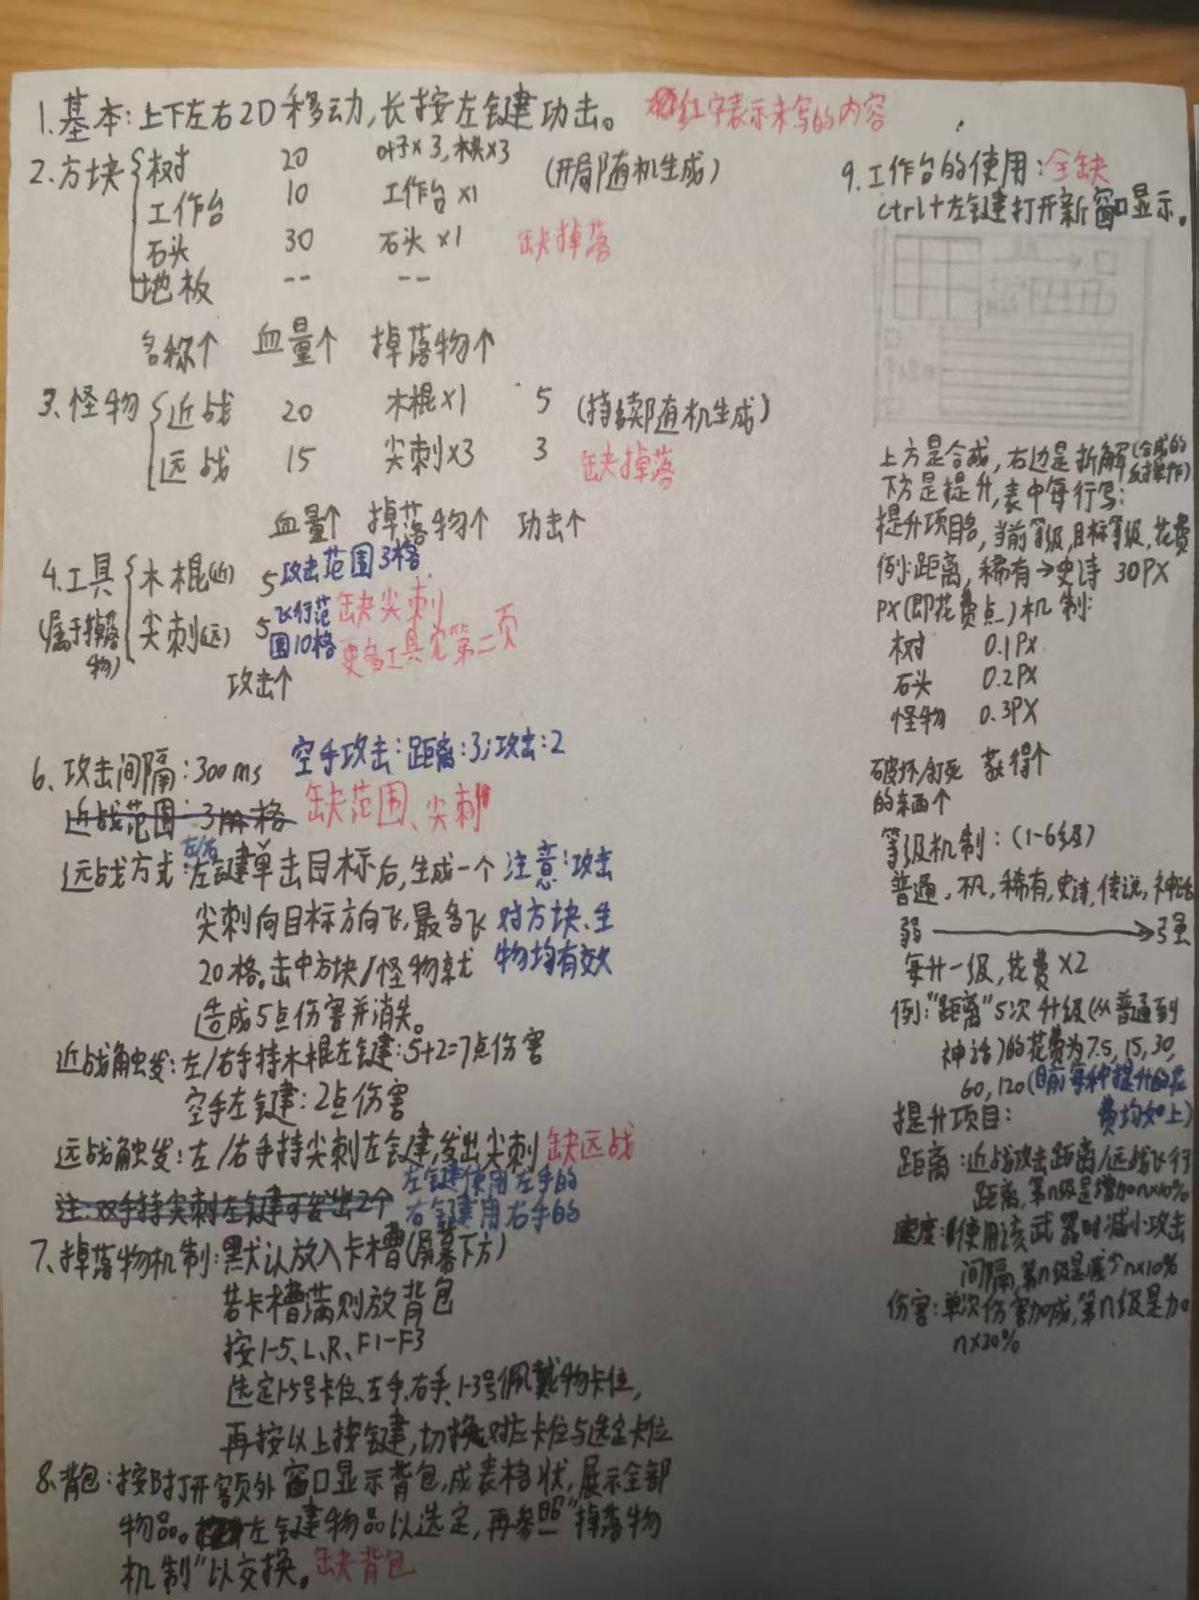 1.基本:上下左右2D移动,长按左键功击。
红字表示未写的内容
2.方块 树 20 叶子×3,木棍×3 (开局随机生成)
工作台 10 工作台×1
石头 30 石头×1 缺掉落
地板 -- --
名称↑ 血量↑ 掉落物↑
3.怪物 近战 20 木棍×1 5 (持续随机生成)
远战 15 尖刺×3 3 缺掉落
血量↑ 掉落物↑ 功击↑
4.工具 木棍(近) 5 攻击范围3格
(属于掉落物) 尖刺(远) 5 飞行范围10格 缺尖刺
更多工具见第二页
攻击↑
6.攻击间隔:300ms 空手攻击:距离:3;攻击:2
近战范围:3格 缺范围、尖刺
远战方式:左/右键单击目标后,生成一个
尖刺向目标方向飞,最多飞
20格。击中方块/怪物就
造成5点伤害并消失。
注意:攻击
对方块、生
物均有效
近战触发:左/右手持木棍左键:5+2=7点伤害
空手左键:2点伤害
远战触发:左/右手持尖刺左键,发出尖刺 缺远战
注:双手持尖刺左键可发出2个
左键使用左手的
右键用右手的
7.掉落物机制:默认放入卡槽(屏幕下方)
若卡槽满则放背包
按1-5、L、R、F1-F3
选定1-5号卡位、左手、右手、1-3号佩戴物卡位,
再按以上按键,切换对应卡位与选定卡位
8.背包:按B打开额外窗口显示背包,成表格状,展示全部
物品。左键物品以选定,再参照"掉落物
机制"以交换。缺背包
9.工作台的使用:全缺
ctrl+左键打开新窗口显示。
上方是合成,右边是拆解(合成的反操作)
下方是提升,表中每行写:
提升项目名,当前等级,目标等级,花费
例:距离,稀有→史诗 30PX
PX(即花费点)机制:
树 0.1PX
石头 0.2PX
怪物 0.3PX
破坏/打死 获得↑
的东西↑
等级机制:(1-6级)
普通,罕见,稀有,史诗,传说,神话
弱→强
每升一级,花费×2
例:"距离"5次升级(从普通到
神话)的花费为7.5,15,30,
60,120(目前每种提升的花
费均如上)
提升项目:
距离:近战攻击距离/远战飞行
距离,第n级是增加n×10%
速度:使用该武器时减小攻击
间隔,第n级是减少n×10%
伤害:单次伤害加成,第n级是加
n×20%